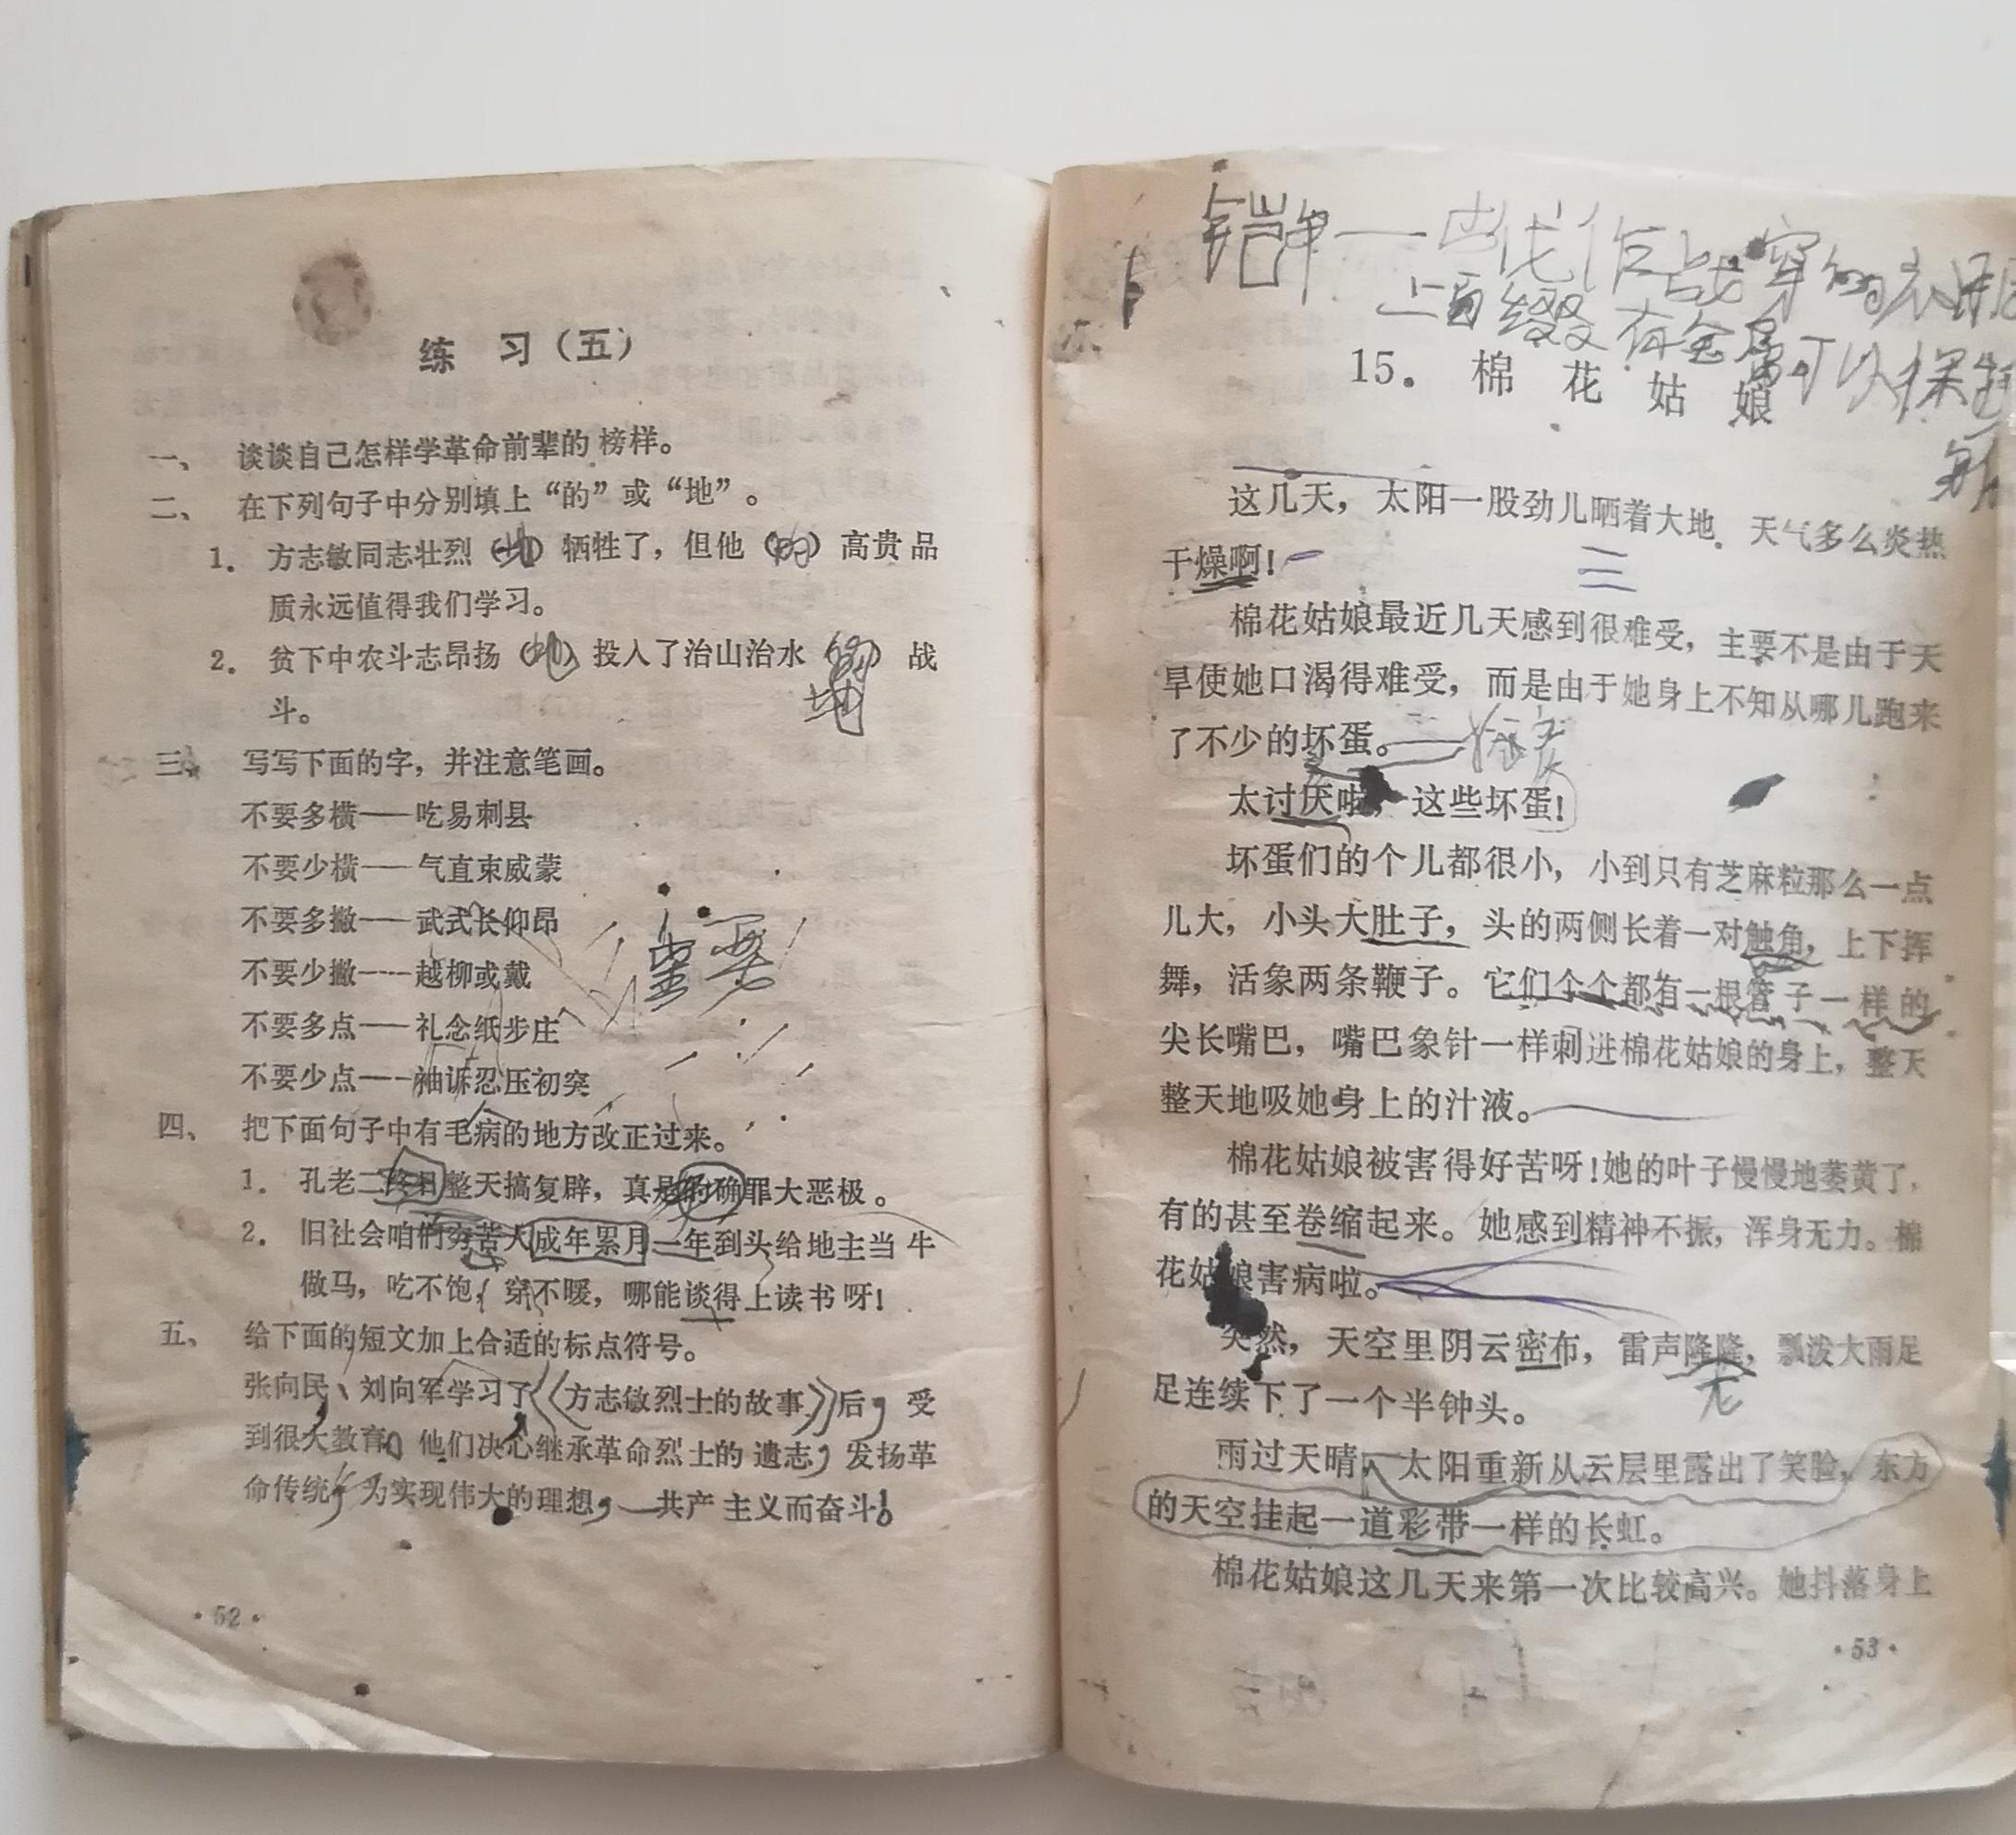 练 习（五）
一、 谈谈自己怎样学革命前辈的榜样。
二、 在下列句子中分别填上“的”或“地”。
1. 方志敏同志壮烈（地）牺牲了，但他（的）高贵品
质永远值得我们学习。
2. 贫下中农斗志昂扬（地）投入了治山治水（的）战
地
斗。
三、 写写下面的字，并注意笔画。
不要多横——吃易刺县
不要少横——气直束威蒙
不要多撇——武式长仰昂
不要少撇——越柳或戴
不要多点——礼念纸步庄
不要少点——袖诉忍压初突
四、 把下面句子中有毛病的地方改正过来。
1. 孔老二终日整天搞复辟，真是的确罪大恶极。
2. 旧社会咱们穷苦人成年累月一年到头给地主当牛
做马，吃不饱，穿不暖，哪能谈得上读书呀！
五、 给下面的短文加上合适的标点符号。
张向民、刘向军学习了《方志敏烈士的故事》后，受
到很大教育。他们决心继承革命烈士的遗志，发扬革
命传统，为实现伟大的理想，—共产主义而奋斗！
·52·
铠甲——古代作战穿的衣服
上面缀有金属可以保护
15. 棉花姑娘
这几天，太阳一股劲儿晒着大地．天气多么炎热
干燥啊！
棉花姑娘最近几天感到很难受，主要不是由于天
旱使她口渴得难受，而是由于她身上不知从哪儿跑来
了不少的坏蛋。
太讨厌啦，这些坏蛋！
坏蛋们的个儿都很小，小到只有芝麻粒那么一点
儿大，小头大肚子，头的两侧长着一对触角，上下挥
舞，活象两条鞭子。它们个个都有一根管子一样的
尖长嘴巴，嘴巴象针一样刺进棉花姑娘的身上，整天
整天地吸她身上的汁液。
棉花姑娘被害得好苦呀！她的叶子慢慢地萎黄了，
有的甚至卷缩起来。她感到精神不振，浑身无力。棉
花姑娘害病啦。
突然，天空里阴云密布，雷声隆隆，瓢泼大雨足
足连续下了一个半钟头。
雨过天晴，太阳重新从云层里露出了笑脸，东方
的天空挂起一道彩带一样的长虹。
棉花姑娘这几天来第一次比较高兴。她抖落身上
·53·